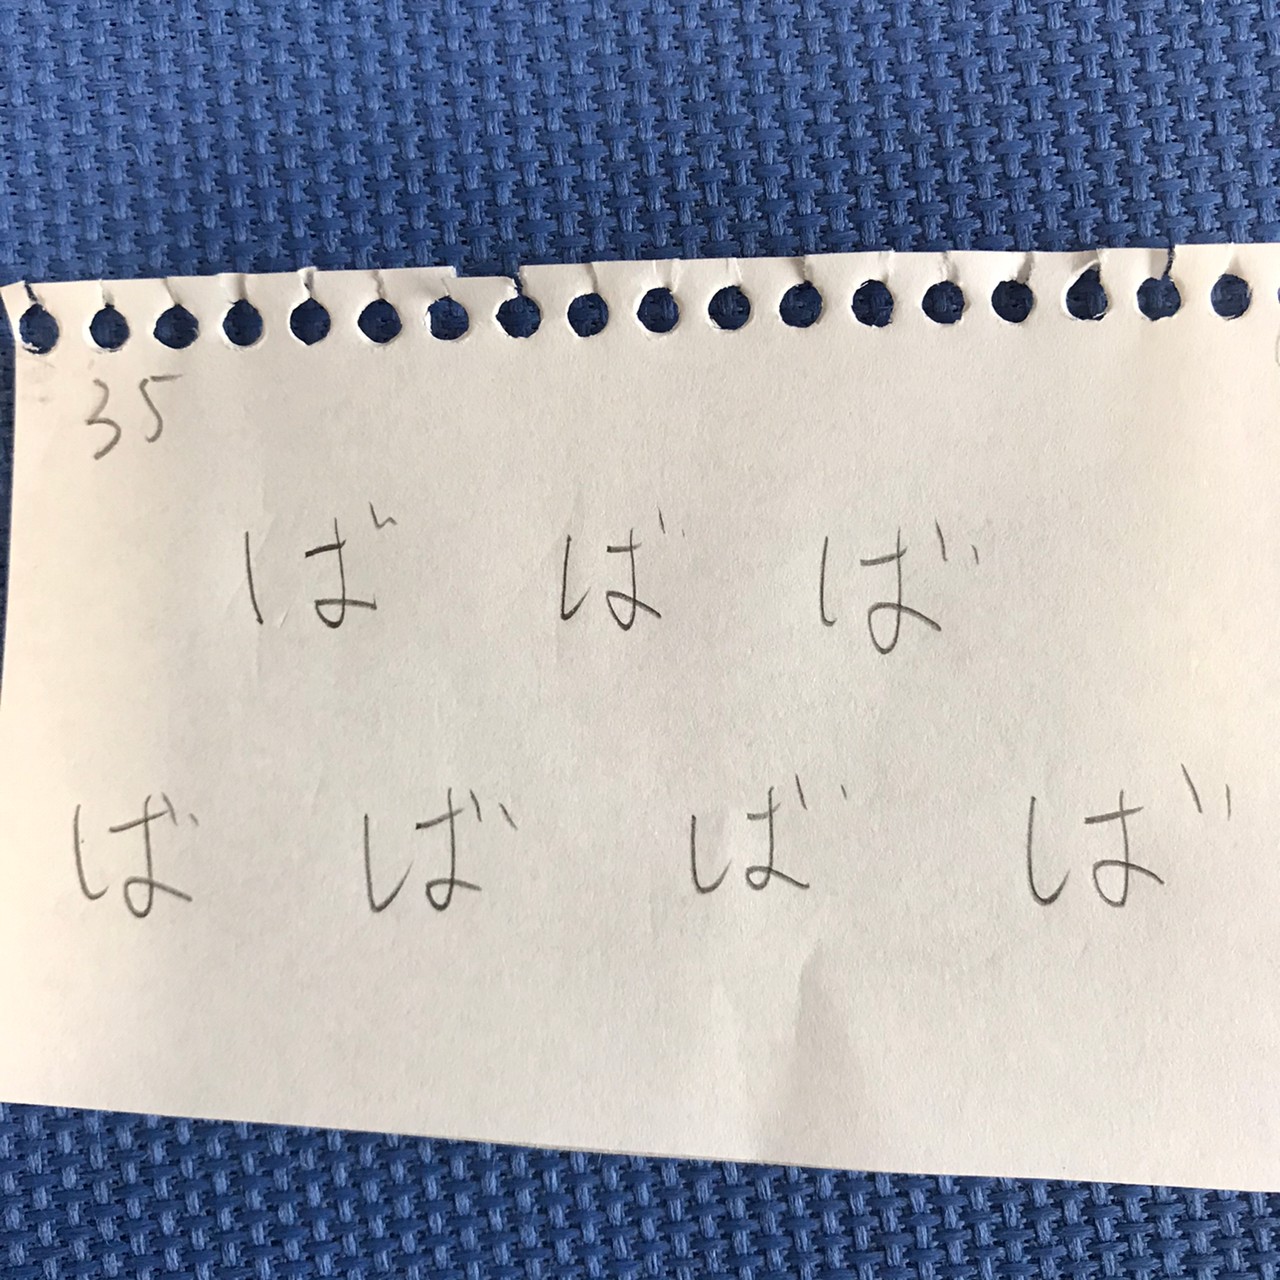 35
ば ば ば
ば ば ば ば